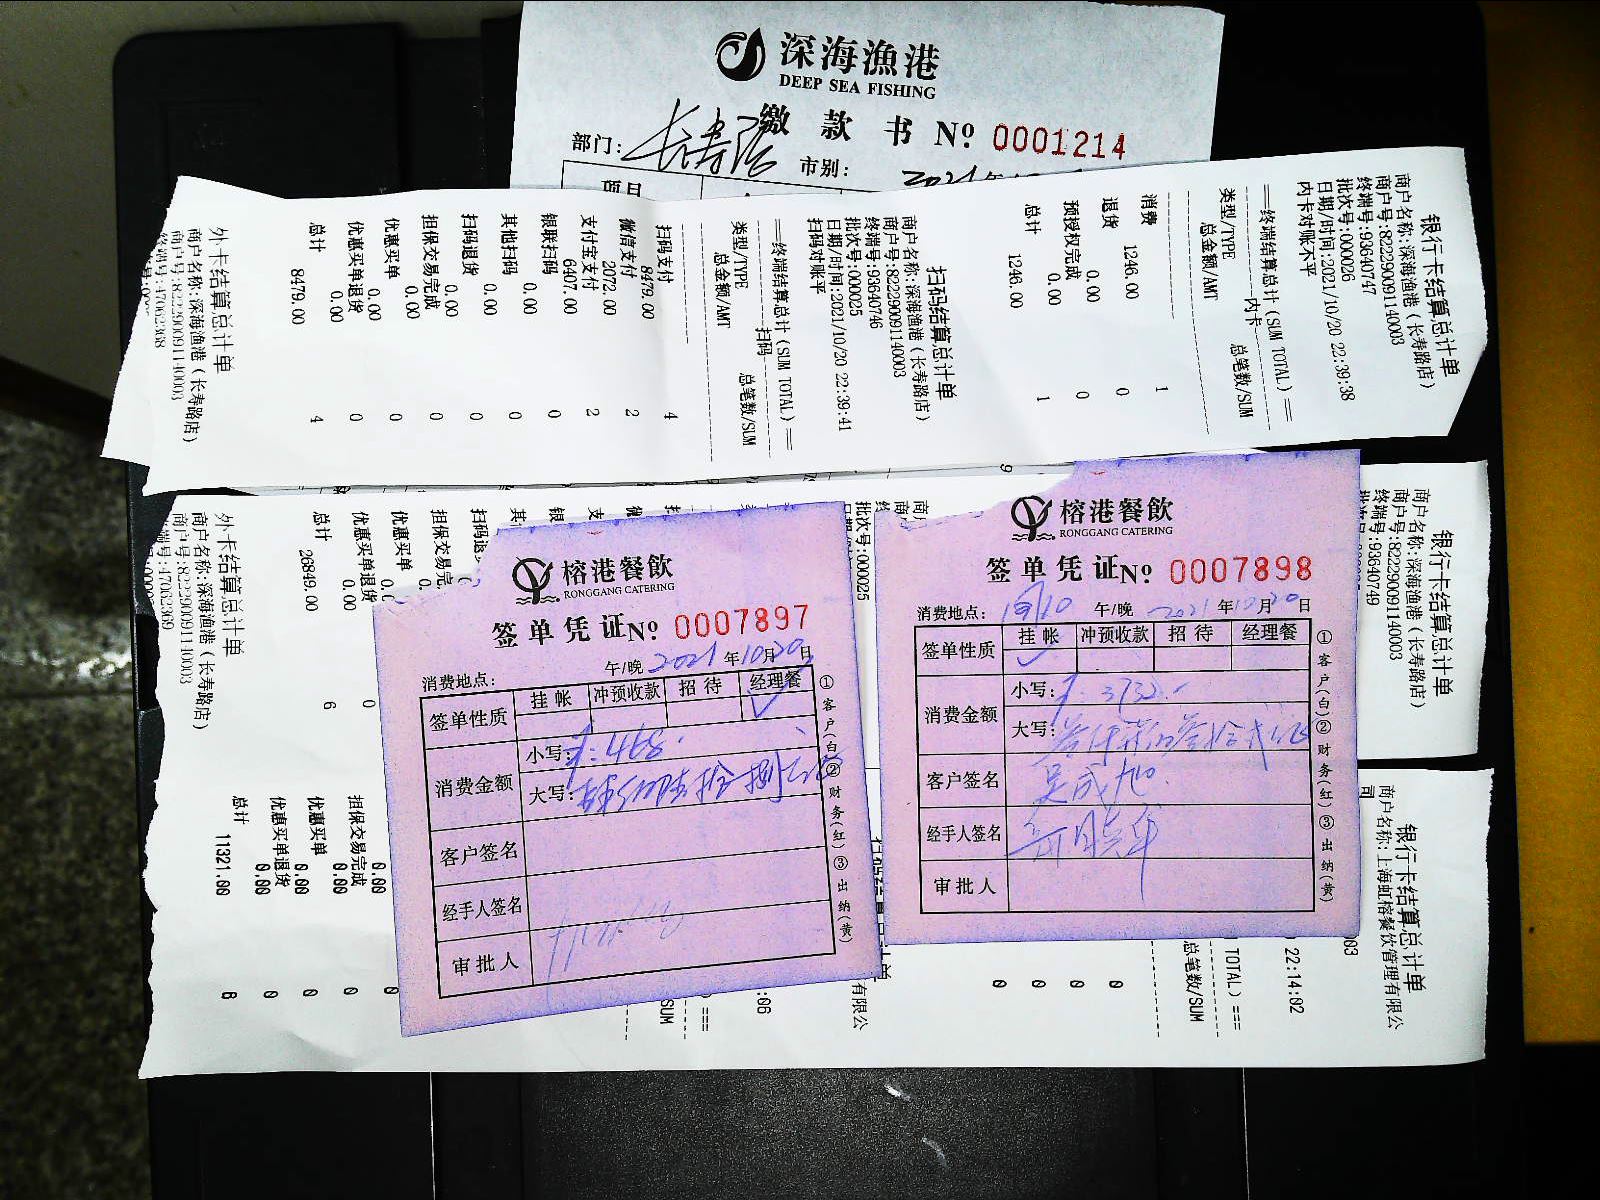 深海漁港
DEEP SEA FISHING
缴款书 No 0001214
部门: 长寿路
市别:
2021年
项目
银行卡结算总计单
商户名称:深海渔港(长寿路店)
商户号:822290091140003
终端号:93640747
批次号:000026
日期/时间:2021/10/20 22:39:38
内卡对账不平
==终端结算总计(SUM TOTAL)==
内卡
类型/TYPE 总笔数/SUM
总金额/AMT
消费 1
1246.00
退货 0
0.00
预授权完成 0
0.00
总计 1
1246.00
扫码结算总计单
商户名称:深海渔港(长寿路店)
商户号:822290091140003
终端号:93640746
批次号:000025
日期/时间:2021/10/20 22:39:41
扫码对账平
==终端结算总计(SUM TOTAL)==
扫码
类型/TYPE 总笔数/SUM
总金额/AMT
扫码支付 4
8479.00
微信支付 2
2072.00
支付宝支付 2
6407.00
银联扫码 0
0.00
其他扫码 0
0.00
扫码退货 0
0.00
担保交易完成 0
0.00
优惠买单 0
0.00
优惠买单退货 0
0.00
总计 4
8479.00
外卡结算总计单
商户名称:深海渔港(长寿路店)
商户号:822290091140003
终端号:47062368
银行卡结算总计单
商户名称:深海渔港(长寿路店)
商户号:822290091140003
终端号:93640749
批次号:000025
扫码退
担保交易完
优惠买单
0.00
优惠买单退货 0
0.00
总计 6
26849.00
外卡结算总计单
商户名称:深海渔港(长寿路店)
商户号:822290091140003
终端号:47062369
榕港餐飲
RONGGANG CATERING
签单凭证No 0007897
消费地点: 午/晚 2021年10月20日
签单性质 挂帐 冲预收款 招待 经理餐
消费金额 小写:
大写:
客户签名
经手人签名
审批人
①客户(白)②财务(红)③出纳(黄)
榕港餐飲
RONGGANG CATERING
签单凭证No 0007898
消费地点: 午/晚 2021年10月20日
签单性质 挂帐 冲预收款 招待 经理餐
消费金额 小写: ¥:3732.-
大写: 叁仟柒佰叁拾贰元
客户签名
经手人签名
审批人
①客户(白)②财务(红)③出纳(黄)
银行卡结算总计单
商户名称:上海虹榕餐饮管理有限公
司
22:14:02
TOTAL)===
总笔数/SUM
0
0
0
0
有限公
:06
===
/SUM
0.00 0
担保交易完成 0
0.00
优惠买单 0
0.00
优惠买单退货 0
0.00
总计 6
11321.00